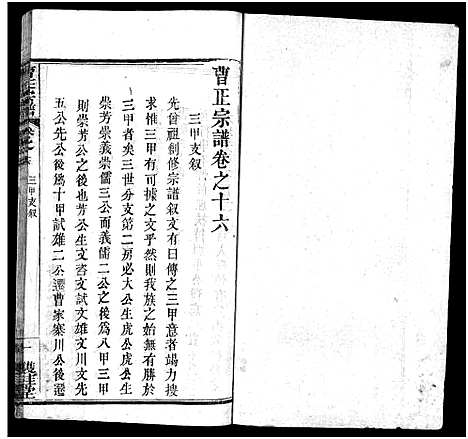 曹正宗譜卷之十六
三甲支叙
先曾祖創修宗譜叙文有曰傳之三甲意者竭力搜
求惟三甲有可據之文乎然則我族之始無有勝於
三甲者矣三世分支第二房必大公生虎公虎公生
崇芳崇義崇儒三公而義儒二公之後為八甲三甲
則崇芳公之後也芳公生文咨文試文雄文川文先
五公先公後為十甲試雄二公遷曹家寨川公後遷
三甲支叙
一
雙桂堂